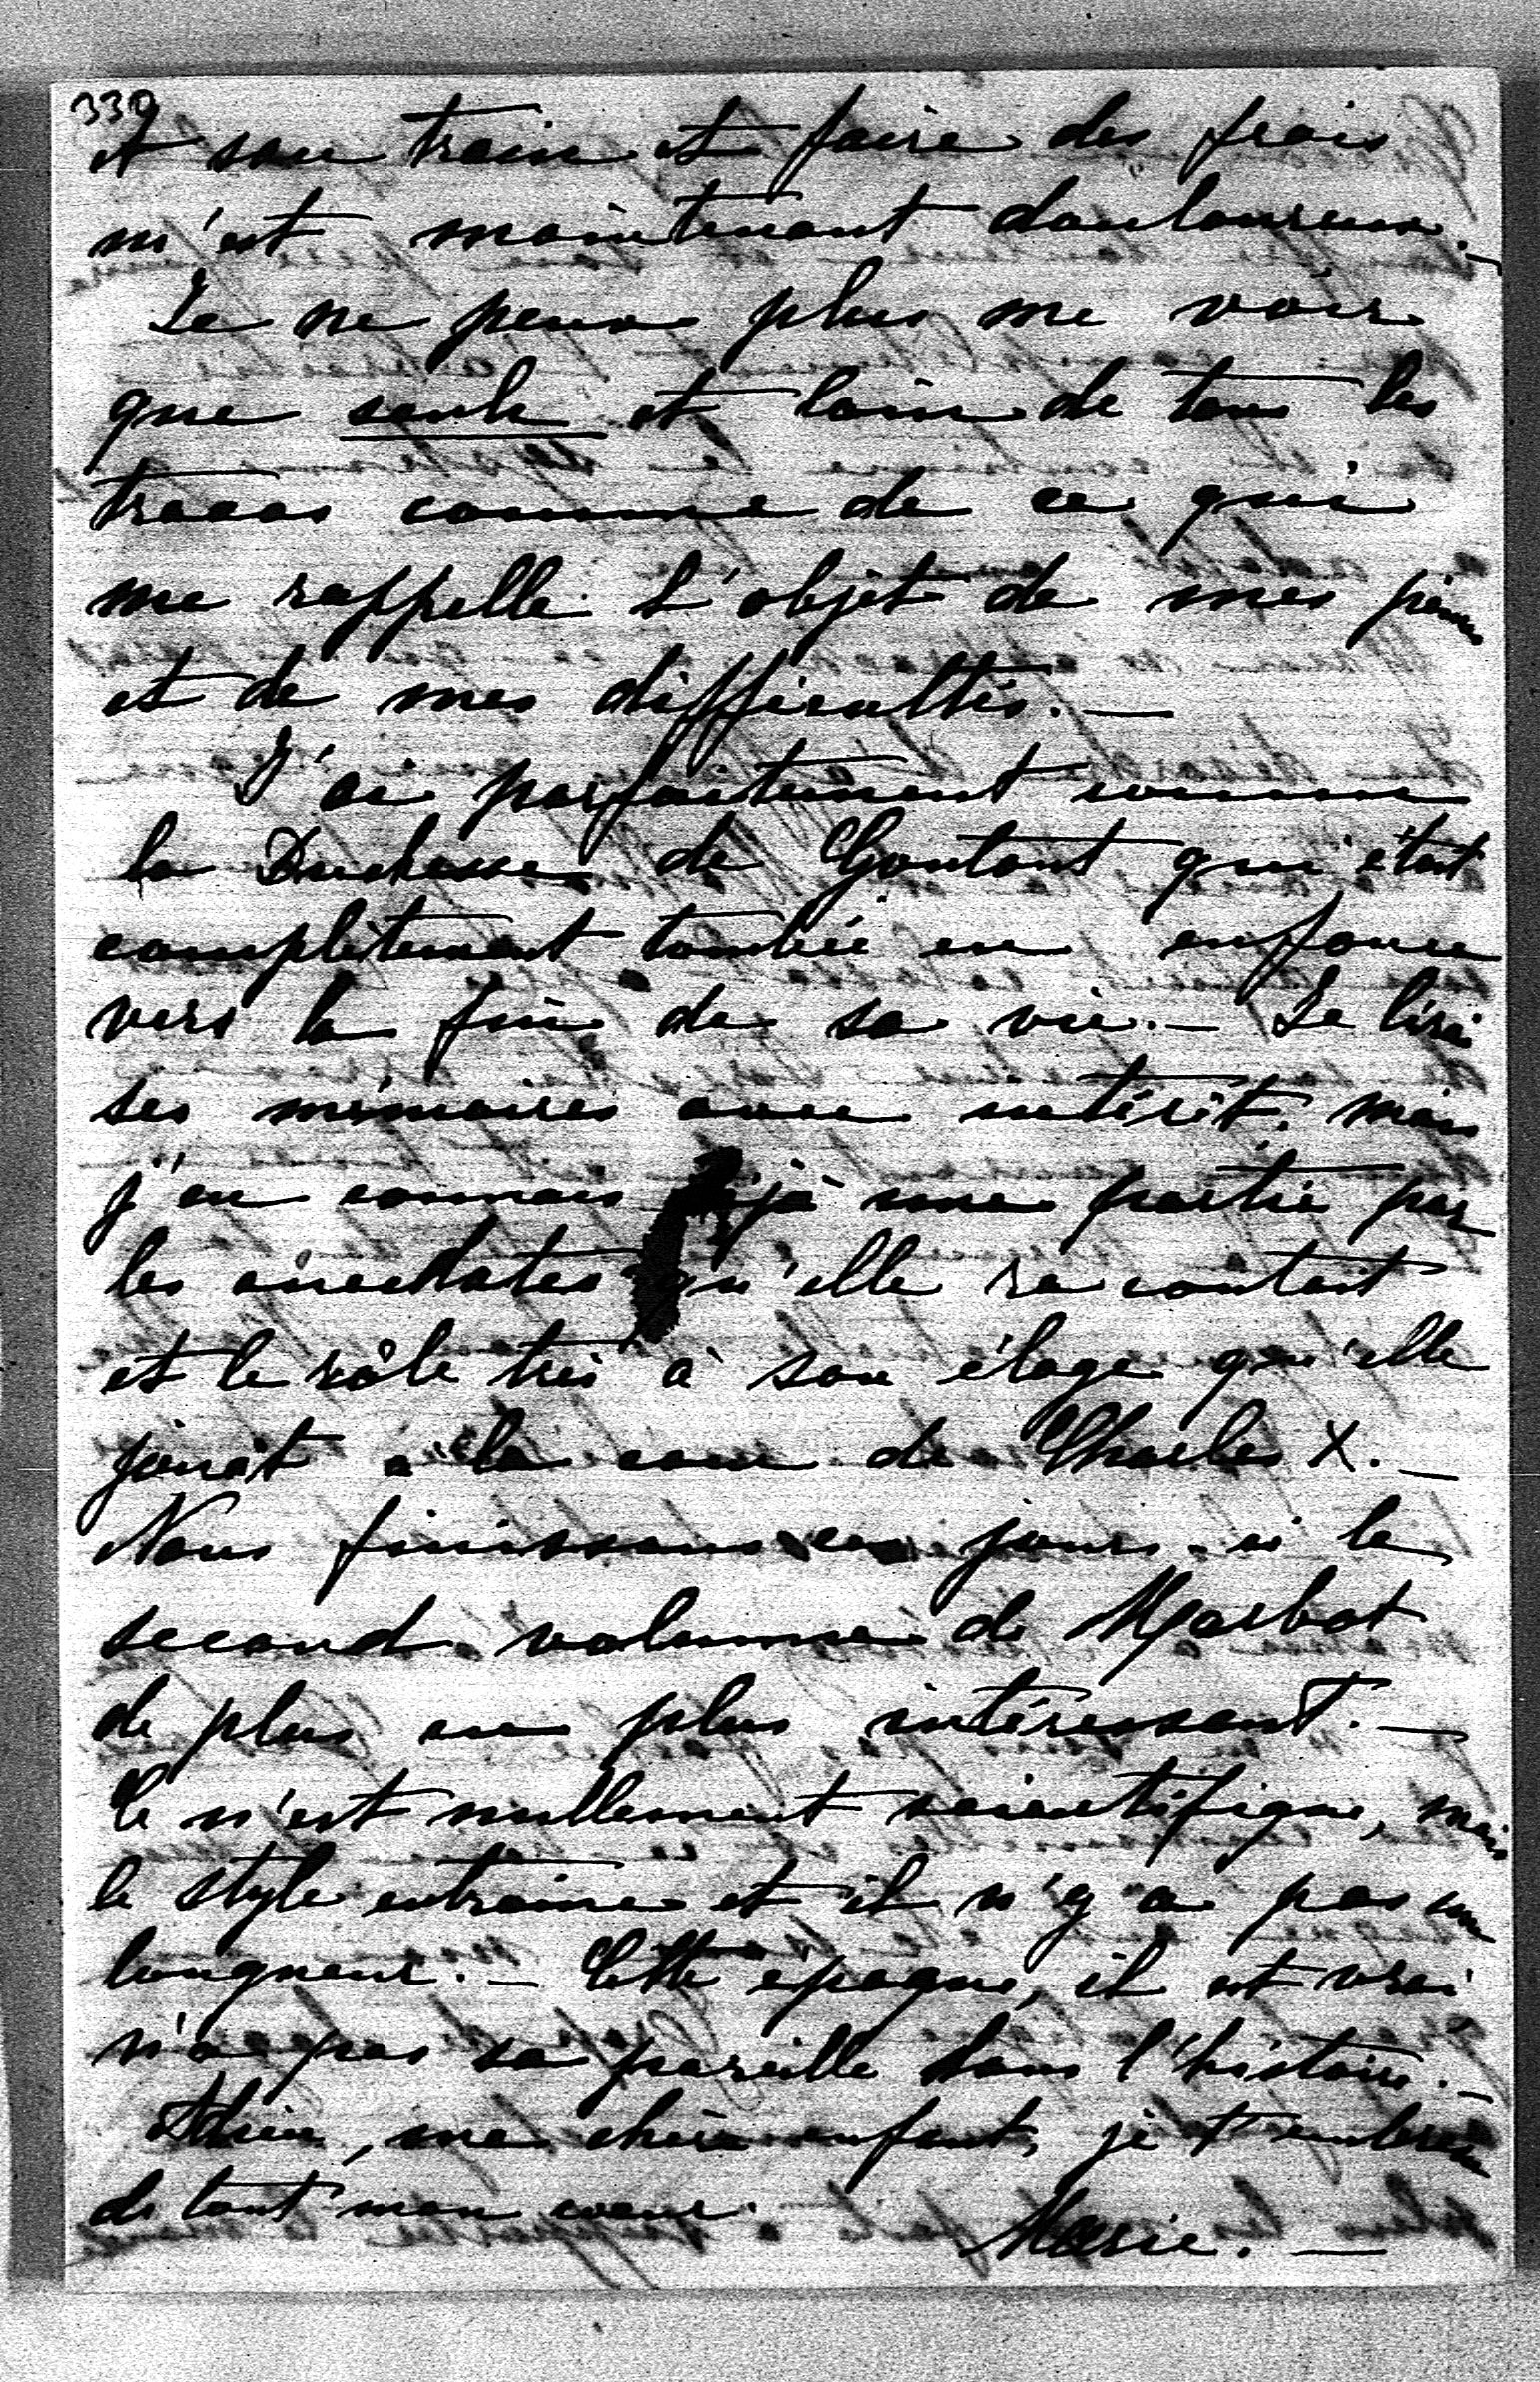 339
et son train et faire des frais
m'est maintenant douloureux. —
Je ne peux plus me voir
que seule et loin de tous les
tracas comme de ce qui
me rappelle l'objet de mes peines
et de mes difficultés. —
J'ai parfaitement connu
la Duchesse de Gontaut qui était
complètement tombée en enfance
vers la fin de sa vie. — Je lirai
ses mémoires avec intérêt, mais
j'en connais déjà une partie par
les anecdotes qu'elle racontait
et le rôle très à son éloge qu'elle
jouait à la cour de Charles X. —
Nous finissons ces jours-ci le
second volume de Marbot
de plus en plus intéressant. —
Ce n'est nullement scientifique, mais
le style entraine et il n'y a pas une
longueur. — Cette époque, il est vrai
n'a pas sa pareille dans l'histoire. —
Adieu, ma chère enfant, je t'embrasse
de tout mon coeur.
Marie. —